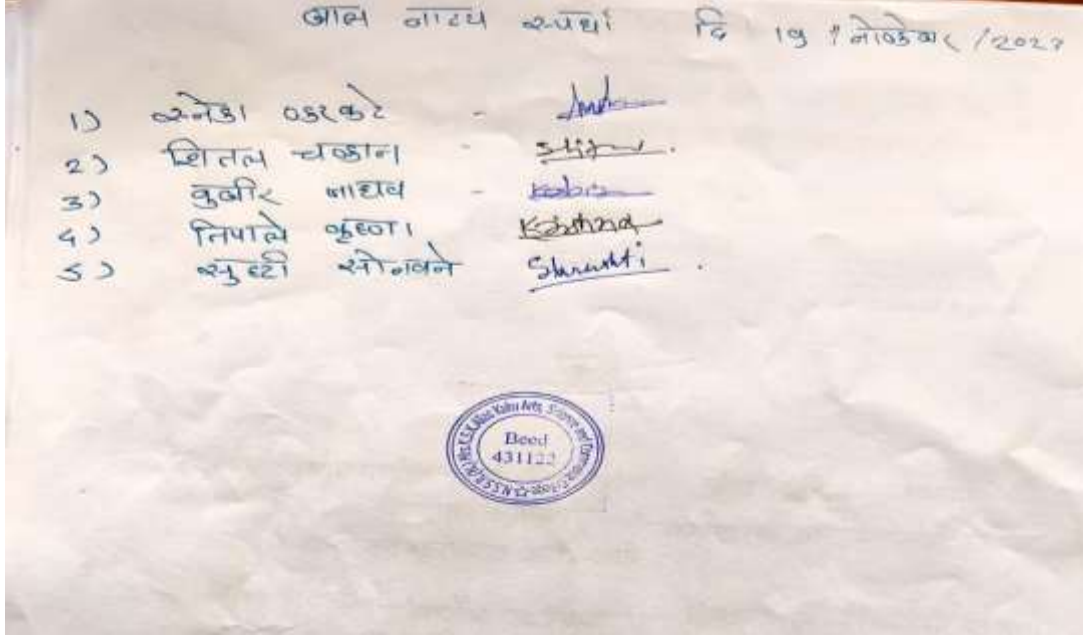 बाल नाट्य स्पर्धा दि 19 / नोव्हेंबर / 2023
1) स्नेहा व्हरकटे -
2) शितल चव्हान -
3) कुबीर जाधव - Kabir
4) तिपाले कृष्णा Krishna
5) सृष्टी सोनवने Shrushti .
Beed
431122